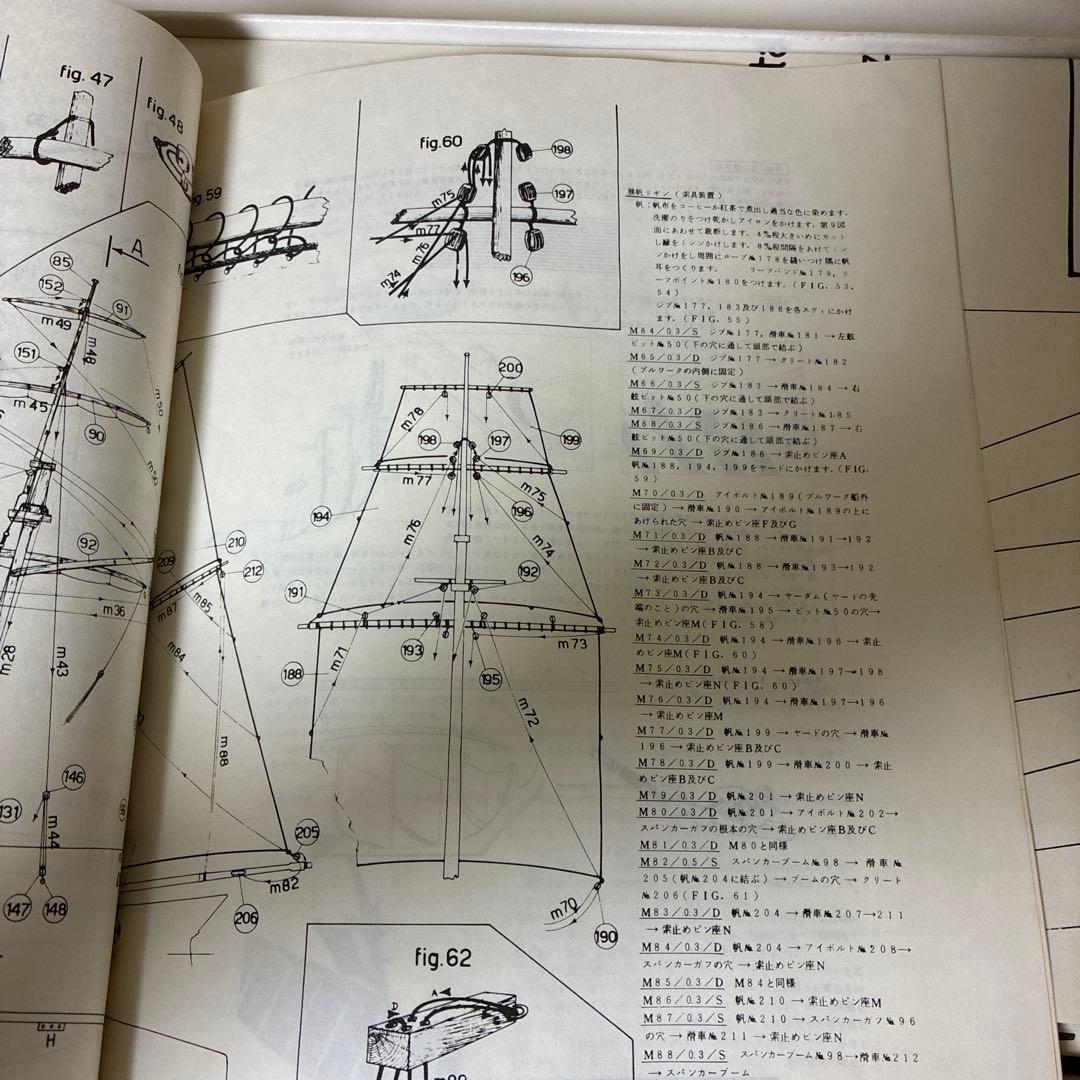 fig. 47
fig. 48
fig.59
fig.60
198
197
196
m75
m77
m76
m74
A
85
152
91
m49
151
m48
m45
90
m50
m50
92
210
209
212
m87
m85
m36
m84
m28
m43
m88
146
131
m44
147
148
205
m82
206
H
200
m78
198
197
199
m77
m75
196
194
m76
m74
192
191
193
m73
m71
188
195
m72
m70
190
fig.62
A
D
展帆リギン(索具装置)
帆:帆布をコーヒーか紅茶で煮出し適当な色に染めます.
洗濯のりをつけ乾かしアイロンをかけます. 第9図
面にあわせて裁断します. 4㎜程大きいめにカット
し縁をミシンかけします. 8㎜程間隔をあけてミシ
ンかけをし周囲にロープ№178を縫いつけ隅に帆
耳をつくります. リーフバンド№179, リ
ーフポイント№180をつけます. (FIG. 53,
54)
ジブ№177, 183及び186を各スティにかけ
ます. (FIG. 55)
M64/0.3/S ジブ№177, 滑車№181 → 左舷
ビット№50(下の穴に通して頭部で結ぶ)
M65/0.3/D ジブ№177 → クリート№182
(ブルワークの内側に固定)
M66/0.3/S ジブ№183 → 滑車№184 → 右
舷ビット№50(下の穴に通して頭部で結ぶ)
M67/0.3/D ジブ№183 → クリート№185
M68/0.3/S ジブ№186 → 滑車№187 → 右
舷ビット№50(下の穴に通して頭部で結ぶ)
M69/0.3/D ジブ№186 → 索止めピン座A
帆№188, 194, 199をヤードにかけます. (FIG.
59)
M70/0.3/D アイボルト№189(ブルワーク船外
に固定) → 滑車№190 → アイボルト№189の上に
あけられた穴 → 索止めピン座F及びG
M71/0.3/D 帆№188 → 滑車№191→192
→ 索止めピン座B及びC
M72/0.3/D 帆№188 → 滑車№193→192
→ 索止めピン座B及びC
M73/0.3/D 帆№194 → ヤーダム(ヤードの先
端のこと)の穴 → 滑車№195 → ビット№50の穴→
索止めピン座M(FIG. 58)
M74/0.3/D 帆№194 → 滑車№196 → 索止
めピン座M(FIG. 60)
M75/0.3/D 帆№194 → 滑車№197→198
→ 索止めピン座N(FIG. 60)
M76/0.3/D 帆№194 → 滑車№197→196
→ 索止めピン座M
M77/0.3/D 帆№199 → ヤードの穴 → 滑車№
196 → 索止めピン座B及びC
M78/0.3/D 帆№199 → 滑車№200 → 索止
めピン座B及びC
M79/0.3/D 帆№201 → 索止めピン座N
M80/0.3/D 帆№201 → アイボルト№202→
スパンカーガフの根本の穴 → 索止めピン座B及びC
M81/0.3/D M80と同様
M82/0.5/S スパンカーブーム№98 → 滑車№
205(帆№204に結ぶ) → ブームの穴 → クリート
№206(FIG. 61)
M83/0.3/D 帆№204 → 滑車№207→211
→ 索止めピン座N
M84/0.3/D 帆№204 → アイボルト№208→
スパンカーガフの穴 → 索止めピン座N
M85/0.3/D M84と同様
M86/0.3/S 帆№210 → 索止めピン座M
M87/0.3/S 帆№210 → スパンカーガフ№96
の穴 → 滑車№211 → 索止めピン座N
M88/0.3/S スパンカーブーム№98→滑車№212
→ スパンカーブーム